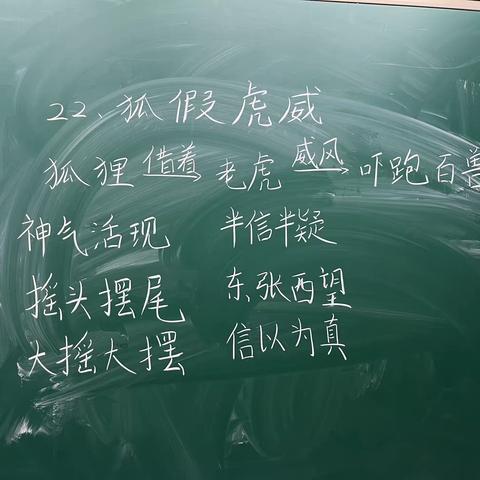 22、狐假虎威
狐狸 借着 老虎 威风 吓跑百兽
神气活现 半信半疑
摇头摆尾 东张西望
大摇大摆 信以为真